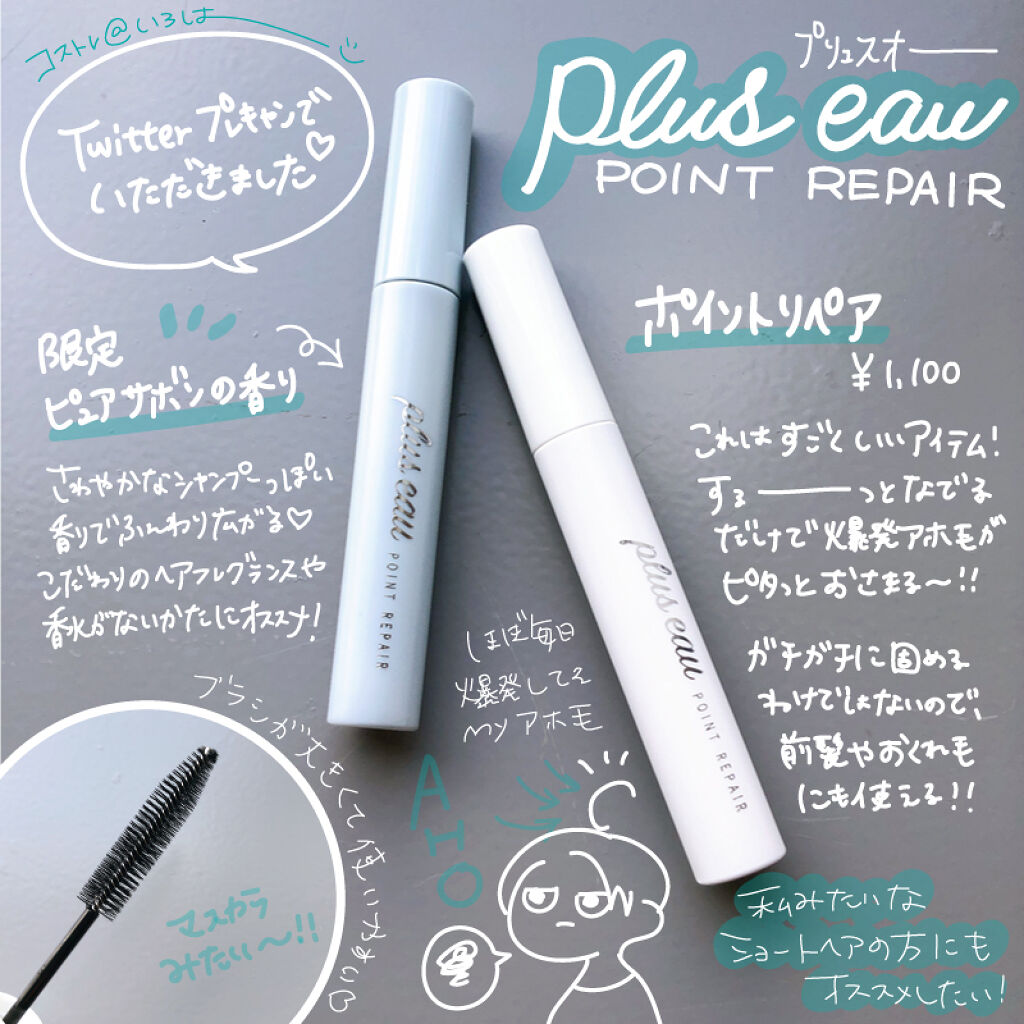 コストレ@いろは
Twitterプレキャンで
いただきました♡
プリュスオー
plus eau
POINT REPAIR
限定
ピュアサボンの香り
さわやかなシャンプーっぽい
香りでふんわり広がる♡
こだわりのヘアフレグランスや
香水がないかたにオススメ!
ポイントリペア
¥1,100
これはすごくいいアイテム!
するーーっとなでる
だけで爆発アホ毛が
ピタッとおさまる〜!!
ガチガチに固める
わけじゃないので、
前髪やおくれ毛
にも使える!!
plus eau
POINT REPAIR
plus eau
POINT REPAIR
ほぼ毎日
爆発してる
myアホ毛
AHO
ブラシが大きくて使いやすい♡
マスカラ
みたい〜!!
私みたいな
ショートヘアの方にも
オススメしたい!